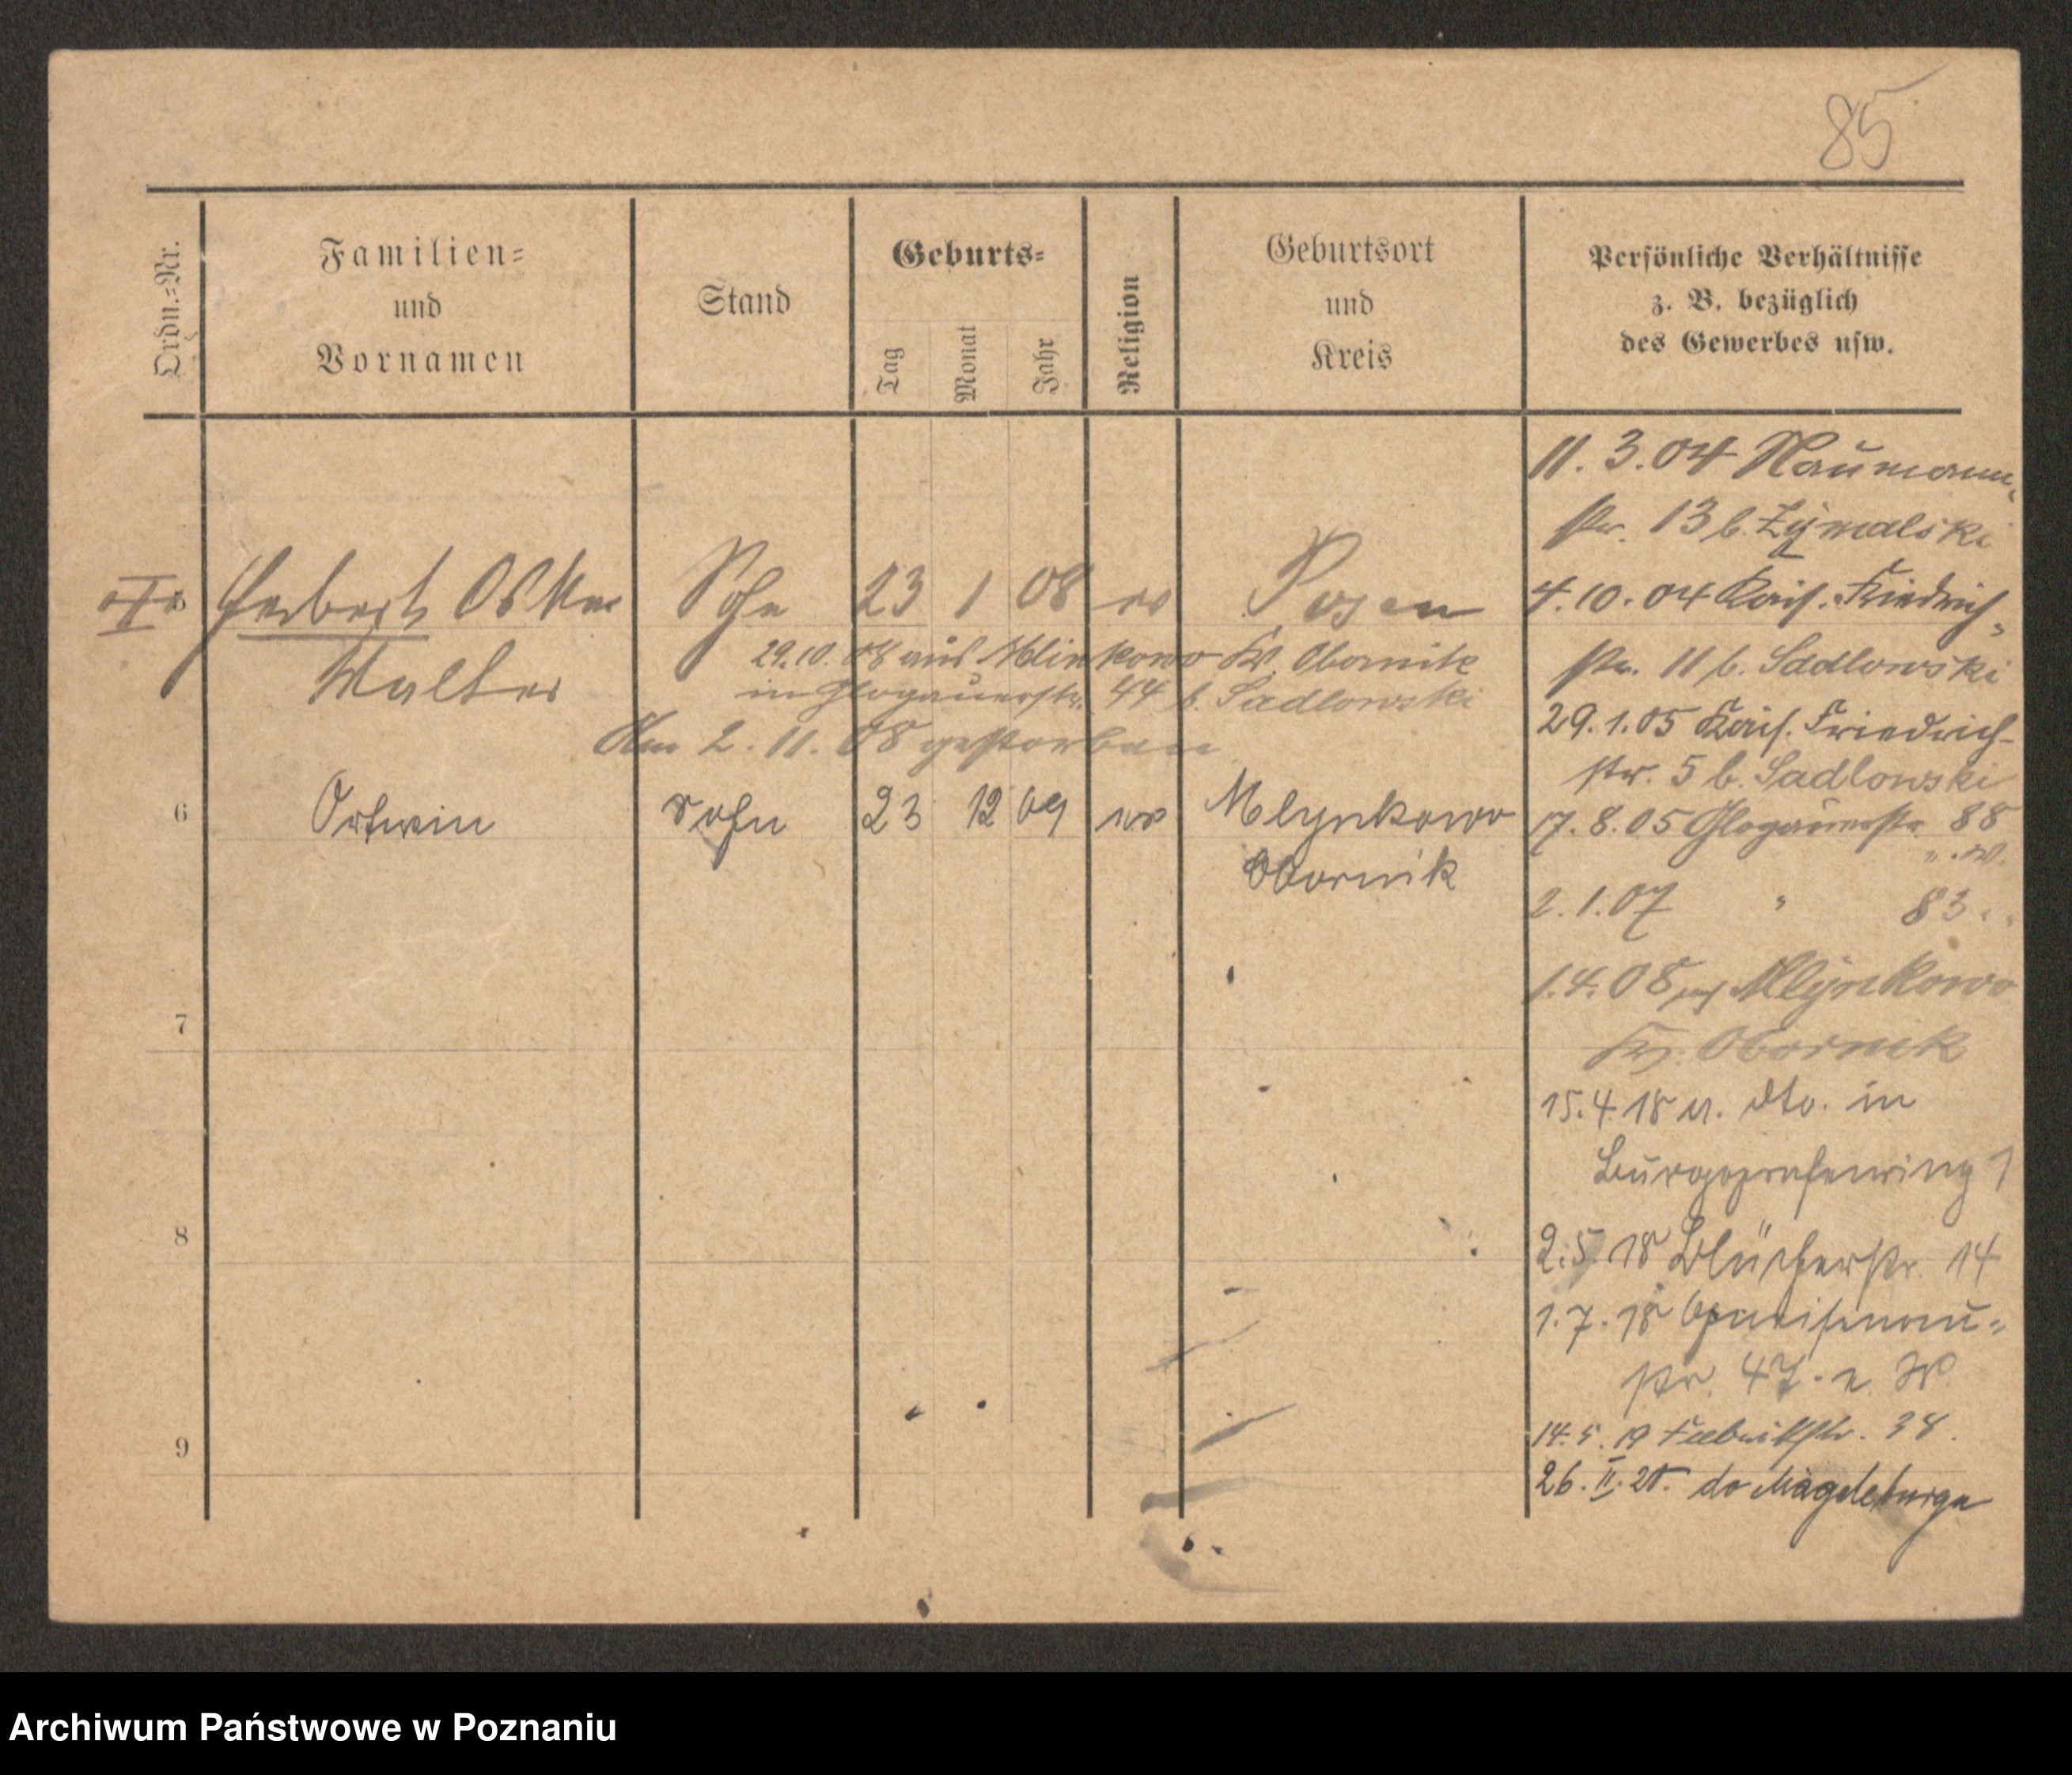 85
Ordn.=Nr.
Familien=
und
Vornamen
Stand
Geburts=
Tag
Monat
Jahr
Religion
Geburtsort
und
Kreis
Persönliche Verhältnisse
z. B. bezüglich
des Gewerbes usw.
Herbert Oskar Sohn 23 1 08 ev Posen
Walter
29.10.08 aus Mlinkowo Kr. Obornik
in Glogauerstr. 44 b. Sadlowski
Am 2.11.08 gestorben
6 Ortwin Sohn 23 12 09 ev Mlynkowo
Obornik
7
8
9
11.3.04 Naumann=
str. 13 b. Zymalski
4.10.04 Kais. Friedrich=
str. 11 b. Sadlowski
29.1.05 Kais. Friedrich-
str. 5 b. Sadlowski
17.8.05 Glogauerstr 88
2.1.07 " 83
1.4.08 Mlynkowo
Kr. Obornik
15.4.18 v. dto. in
Burggrafenring 1
2.5.18 Blücherstr. 14
1.7.18 Gneisenau=
str. 47
14.5.19 38.
26.II.20. do Magdeburga
Archiwum Państwowe w Poznaniu